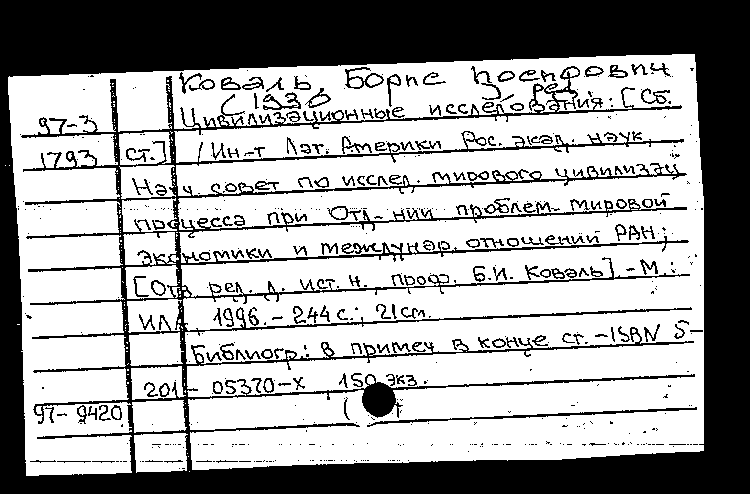 Коваль, Борис Иосифович
(1930 ред.
97-3 Цивилизационные исследования: [Сб.
1793 ст.] / Ин-т Лат. Америки Рос. акад. наук,
Науч. совет по исслед. мирового цивилизац.
процесса при Отд-нии проблем мировой
экономики и междунар. отношений РАН;
[Отв. ред. д. ист. н., проф. Б.И. Коваль]. - М.:
ИЛА, 1996. - 244 с.; 21 см.
Библиогр.: в примеч в конце ст. - ISBN 5-
201-05370-X, 150 экз.
97-9420